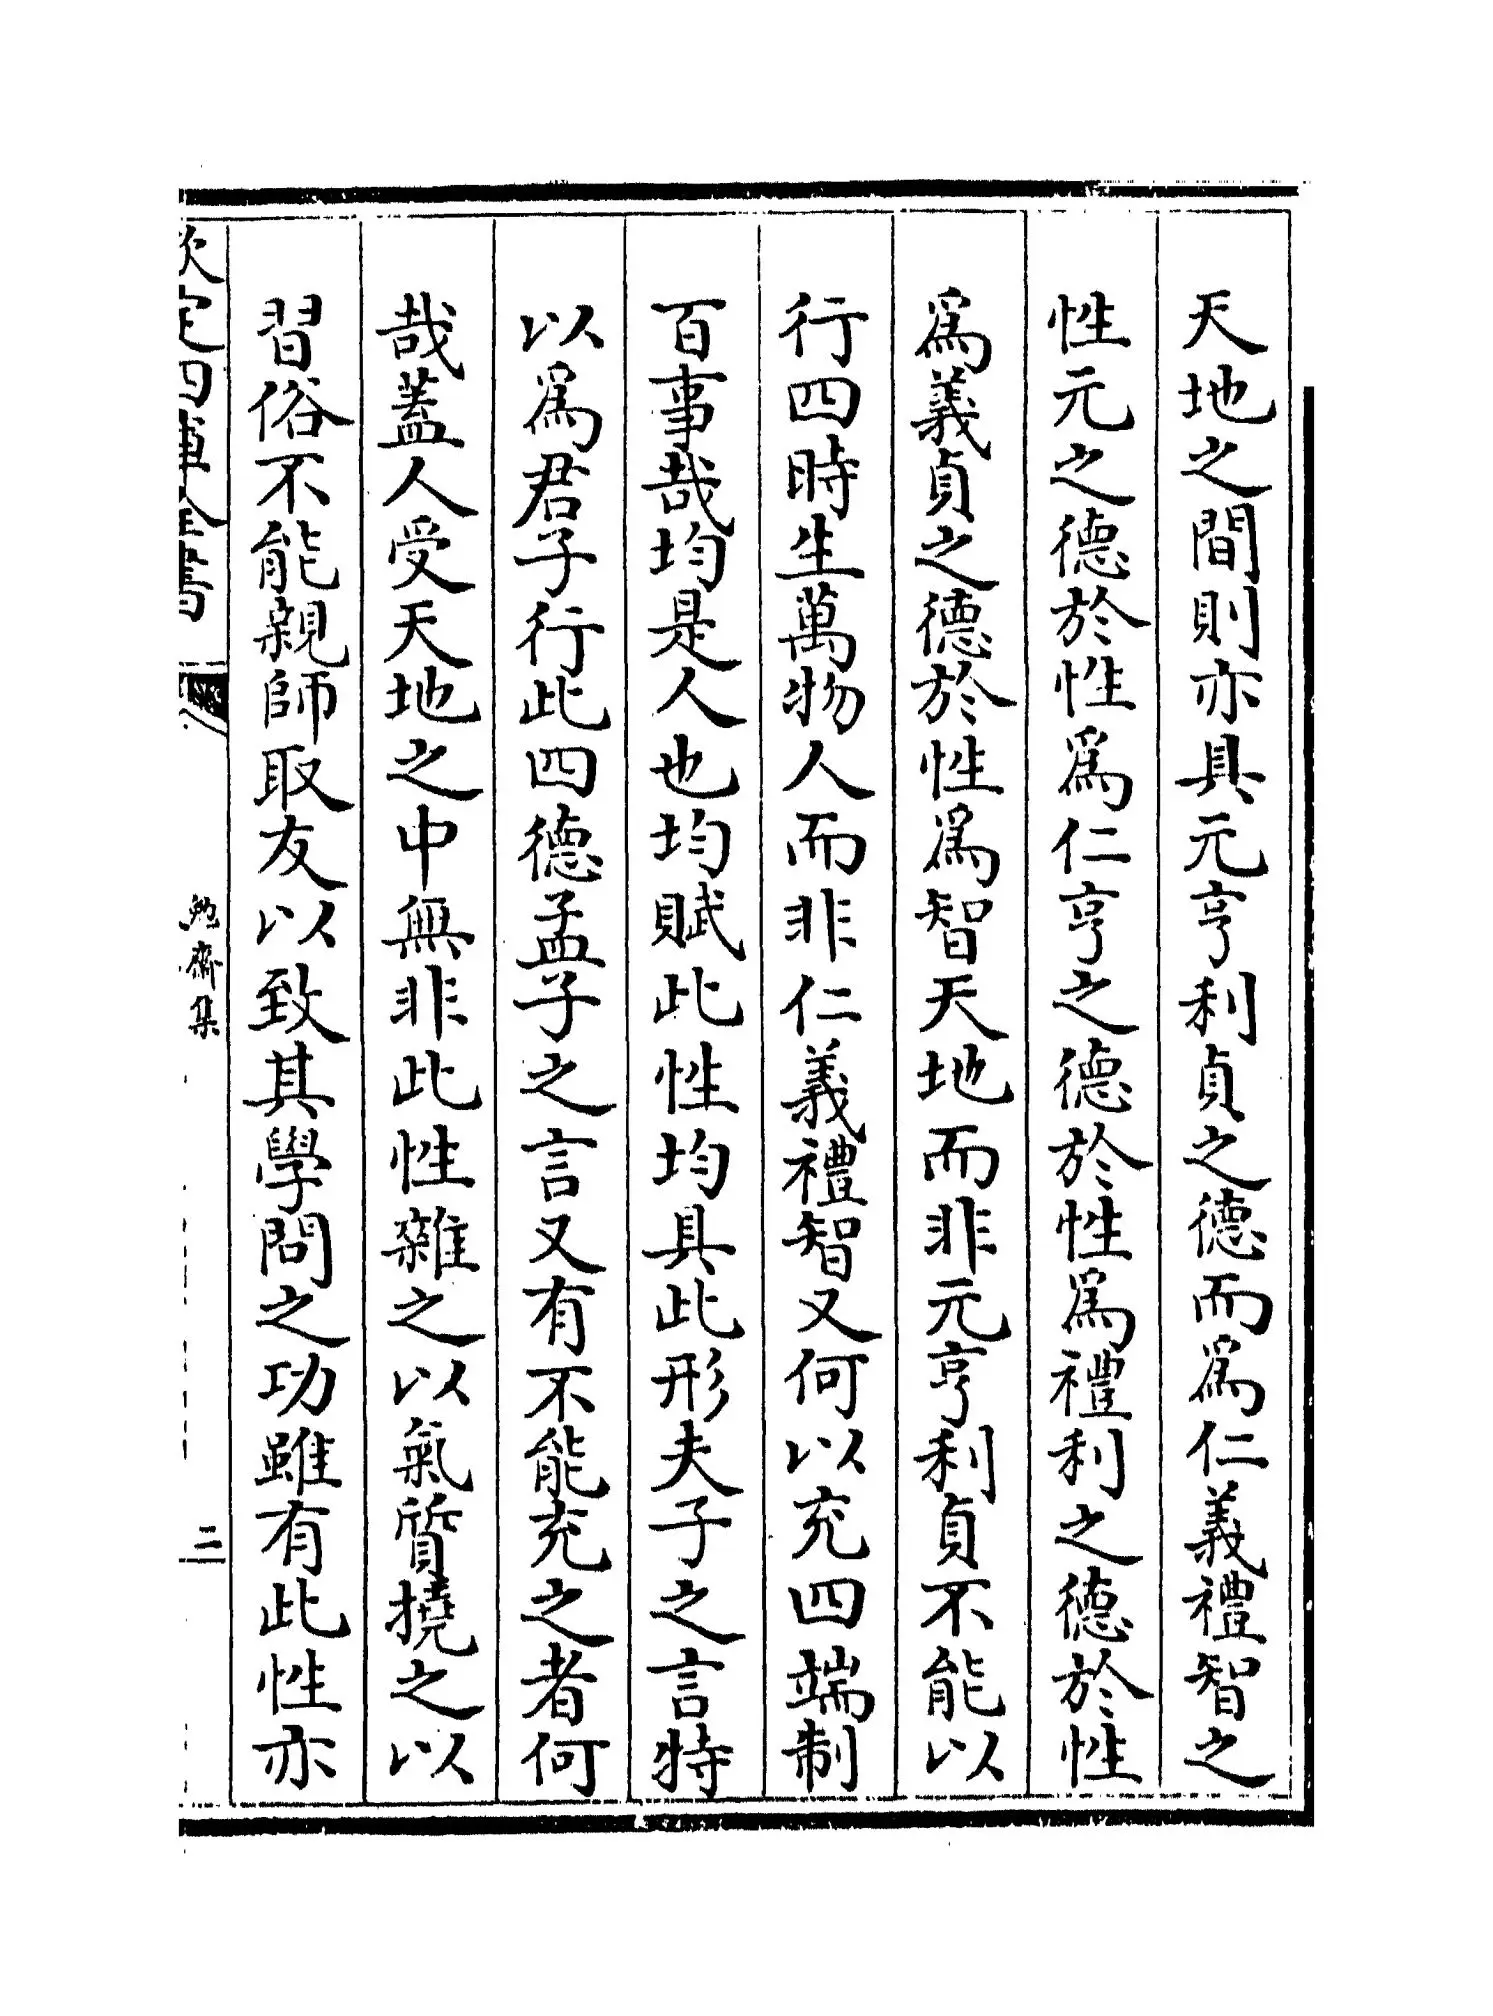 天地之間則亦具元亨利貞之德而為仁義禮智之
性元之德於性為仁亨之德於性為禮利之德於性
為義貞之德於性為智天地而非元亨利貞不能以
行四時生萬物人而非仁義禮智又何以充四端制
百事哉均是人也均賦此性均具此形夫子之言特
以為君子行此四德孟子之言又有不能充之者何
哉蓋人受天地之中無非此性雜之以氣質撓之以
習俗不能親師取友以致其學問之功雖有此性亦
欽定四庫全書
勉齋集
二